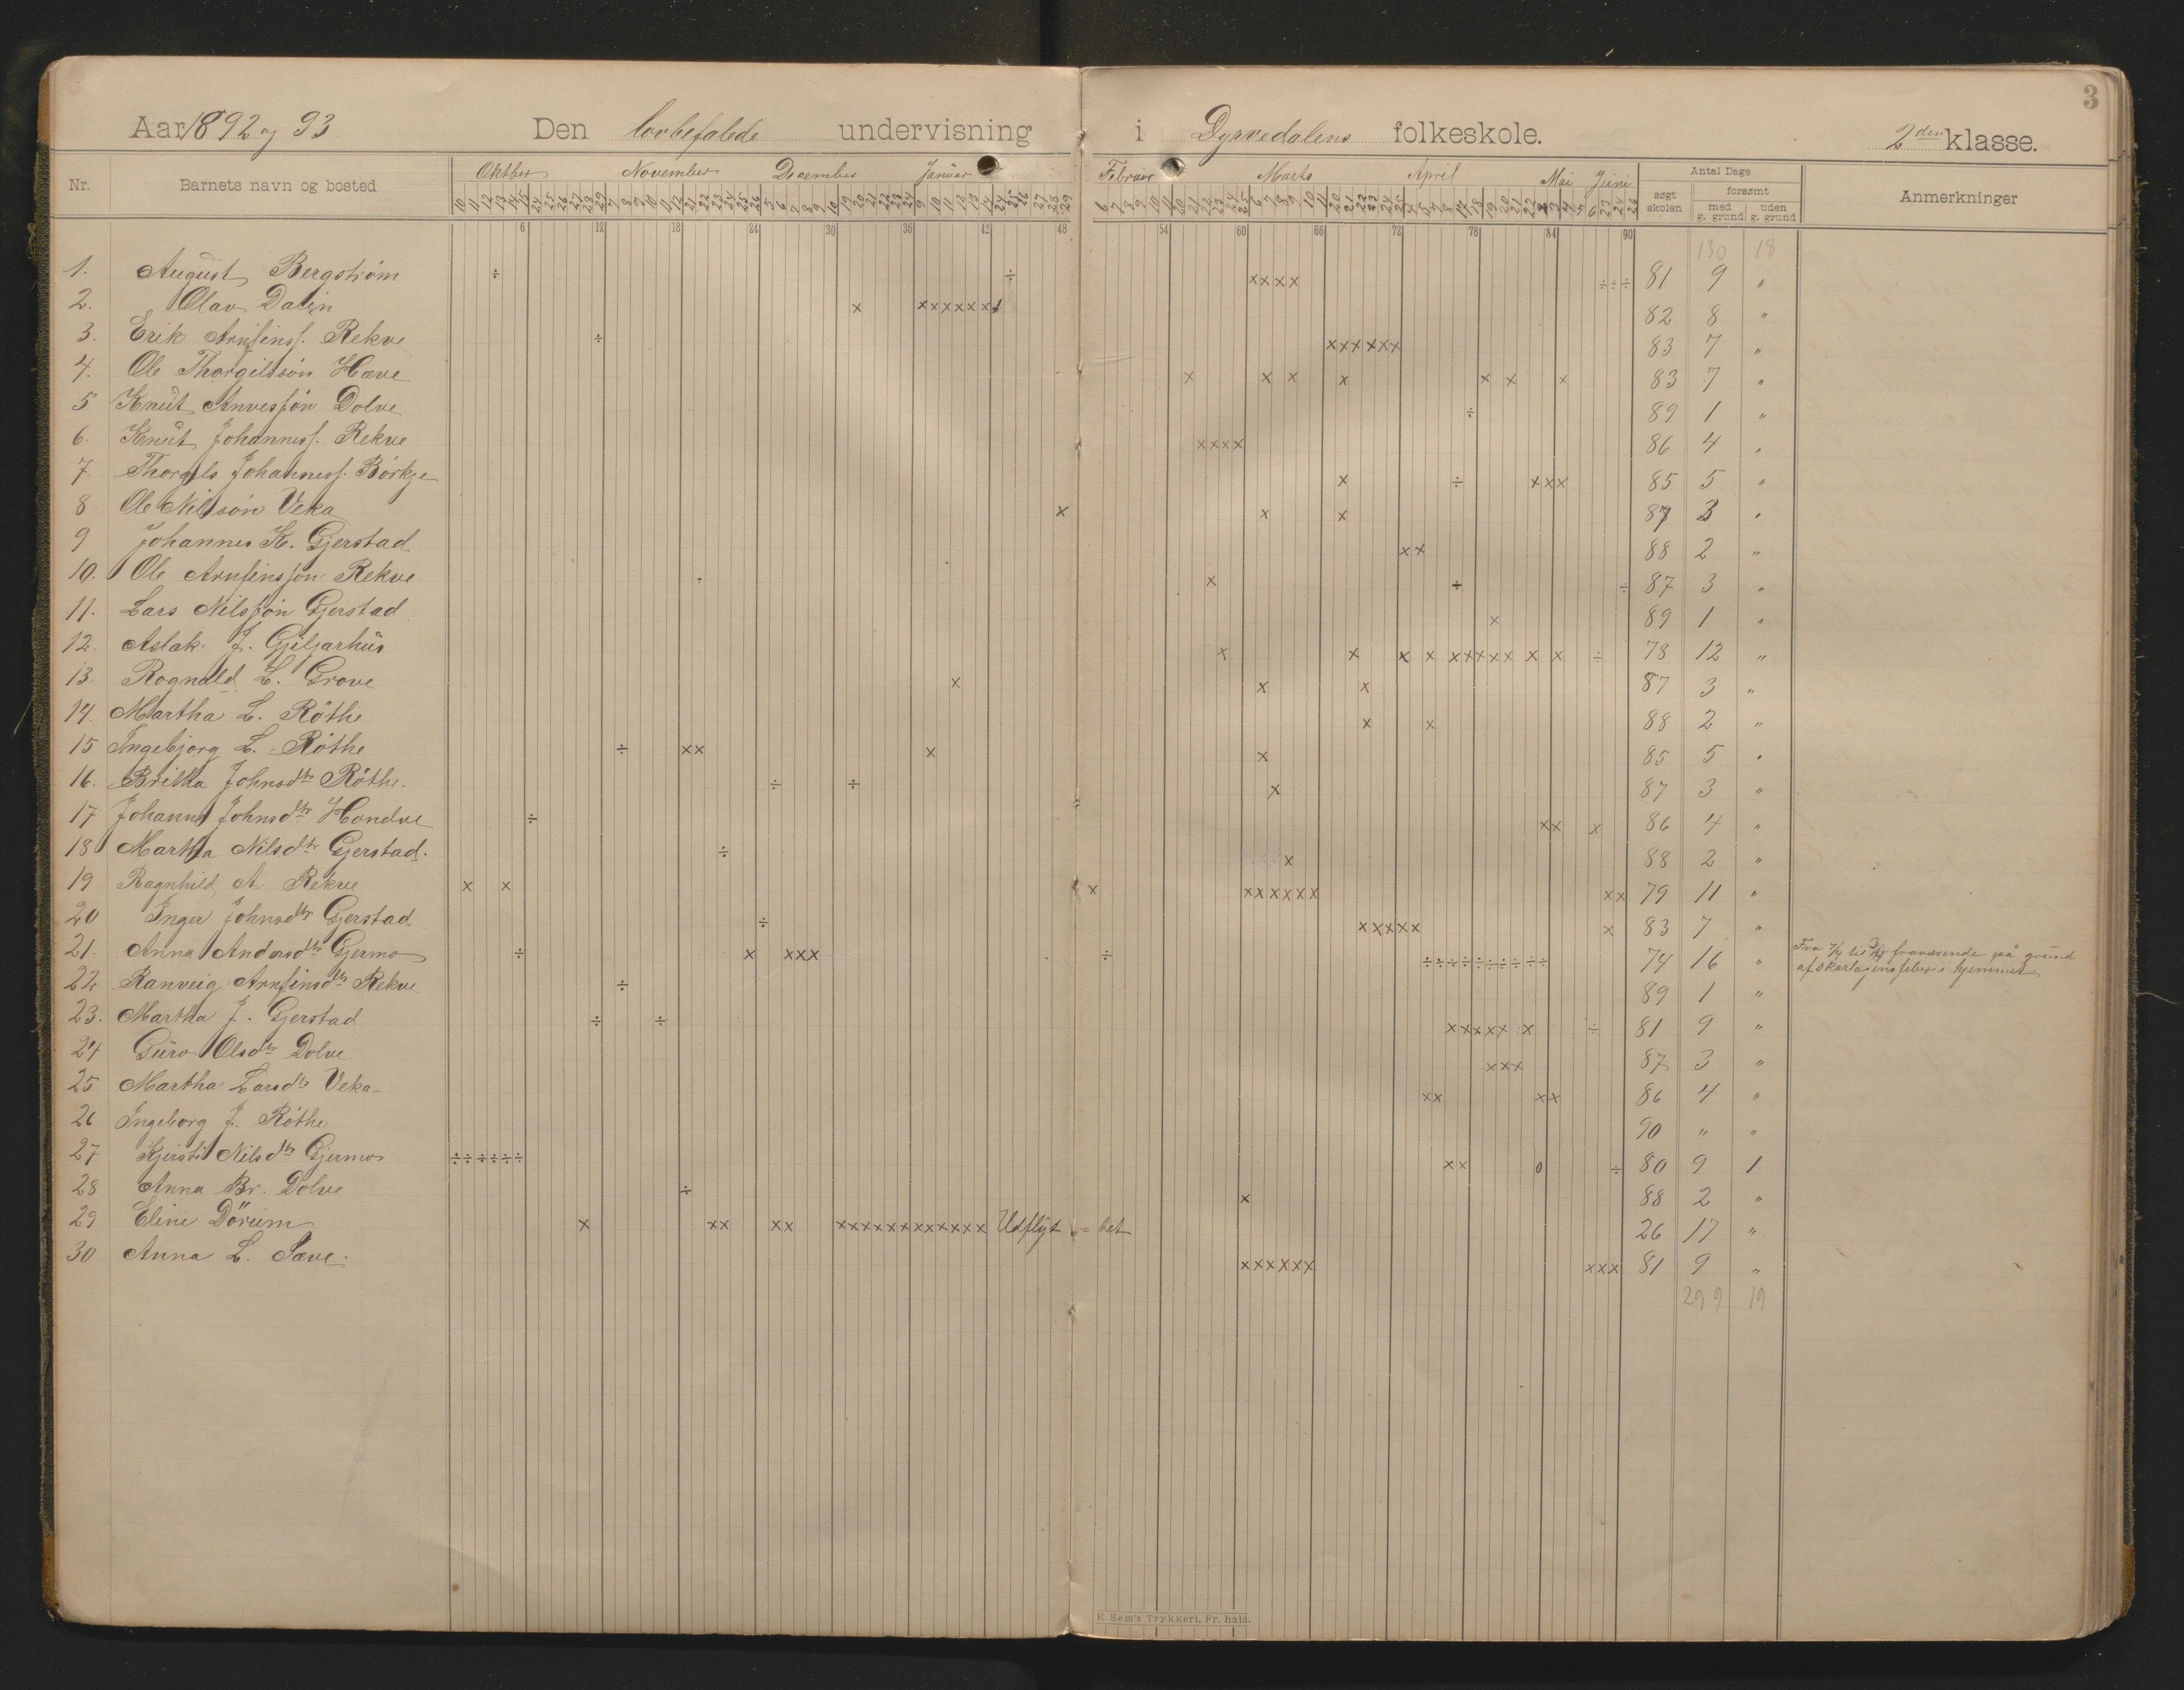 3
Aar 1892 og 93 Den lovbefalede undervisning i Dyrvedalens folkeskole. 2den klasse.
Nr. Barnets navn og bosted Oktber November December Januar Februar Marts April Mai Juni Antal Dage Anmerkninger
søgt skolen forsømt
med g. grund uden g. grund
6 12 18 24 30 36 42 48 54 60 66 72 78 84 90
130 18
1. August Bergström ÷ ÷ ×××× ÷÷÷ 81 9 "
2. Olav Dalin × ××××××× 82 8 "
3. Erik Arnfinss. Rekve ÷ ×××××× 83 7 "
4. Ole Thorgilsson Hæve × × × × × × × 83 7 "
5 Knut Anvesson Dolve ÷ 89 1 "
6. Knut Johanness. Rekve ×××× 86 4 "
7. Thorgils Johanness. Börkje × ÷ ××× 85 5 "
8 Ole Nilsson Veka × × × 87 3 "
9 Johannes K. Gjerstad ×× 88 2 "
10. Ole Arnfinsson Rekve × ÷ ÷ 87 3 "
11. Lars Nilsson Gjerstad × 89 1 "
12. Aslak J. Giljarhus × × × × ××××× × × ÷ 78 12 "
13. Rognald L. Grove × × × 87 3 "
14. Martha L. Röthe × × 88 2 "
15 Ingebjorg L. Röthe ÷ ×× × × 85 5 "
16. Britha Johnsdtr Röthe. ÷ ÷ × 87 3 "
17 Johanna Johnsdtr Hondve ÷ ×× × 86 4 "
18 Martha Nilsdtr Gjerstad. ÷ × 88 2 "
19 Ragnhild A. Rekve × × × ×××××× ×× 79 11 "
20 Inger Johnsdtr Gjerstad. ÷ ××××× × 83 7 "
21. Anna Andersdtr Gjermo ÷ × ××× ÷ ÷÷÷÷÷÷÷÷÷÷ 74 16 " Fra 7/4 til fraværende på grund
af skarlagensfeber i hjemmet
22 Ranveig Arnfinsdtr Rekve ÷ 89 1 "
23. Martha J. Gjerstad ÷ ÷ ××××× × ÷ 81 9 "
24 Guro Olsdtr Dolve ××× 87 3 "
25 Martha Larsdtr Veka ×× ×× 86 4 "
26 Ingeborg J. Röthe 90 " "
27 Kjersti Nilsdtr Gjermo ÷÷÷÷÷÷ ×× 0 ÷ 80 9 1
28 Anna Br. Dolve ÷ × 88 2 "
29 Eline Dörum × ×× ×× ×××××××××××× Udflyt=tet 26 17 "
30 Anna L. Sæve. ×××××× ××× 81 9 "
299 19
E. Sem's Trykkeri. Fr. hald.